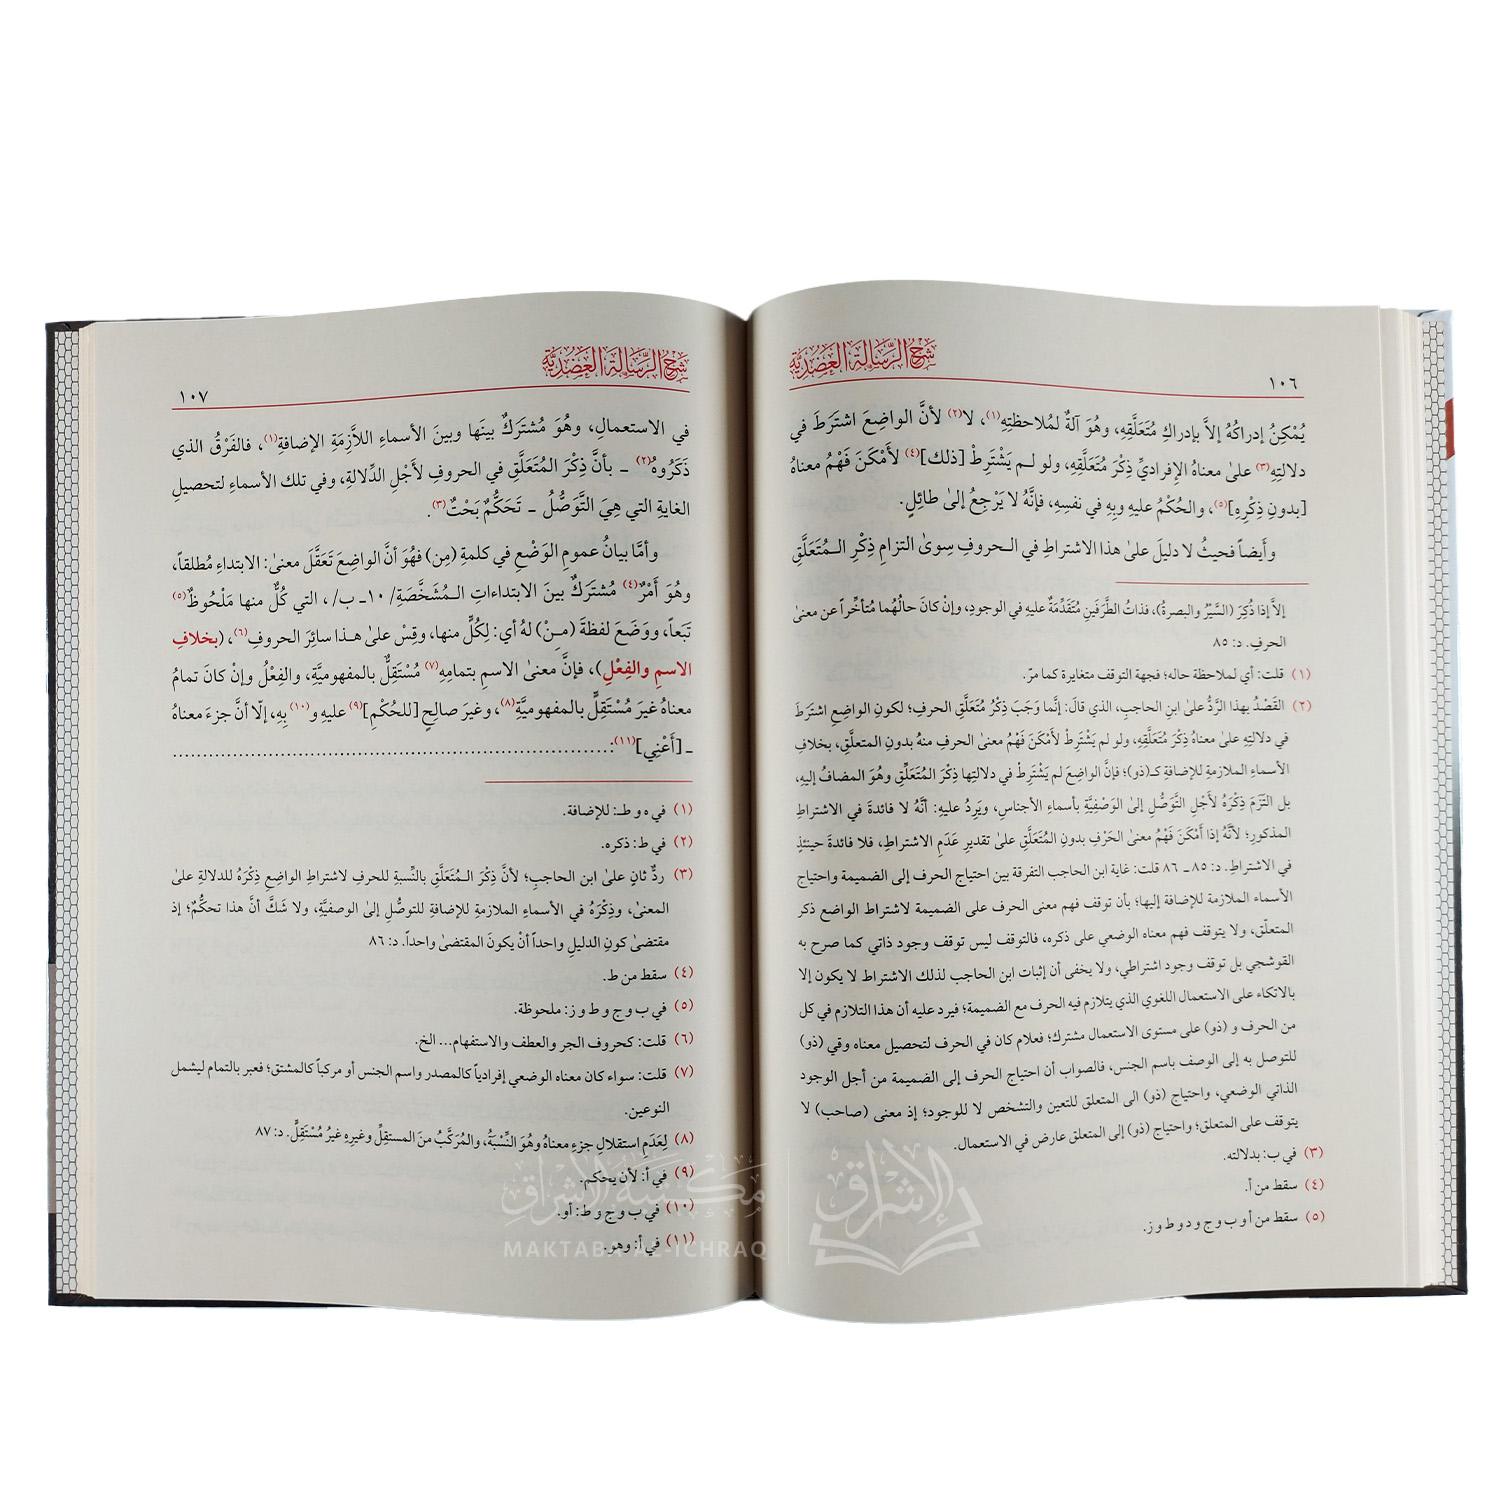 شرح الرسالة العضدية
١٠٦
يُمْكِنُ إدراكُهُ إلاَّ بإدراكِ مُتَعَلَّقِهِ، وهُوَ آلةٌ لمُلاحظتِهِ(١)، لا(٢) لأنَّ الواضِعَ اشترَطَ في
دلالتِهِ(٣) علىٰ معناهُ الإفراديِّ ذِكْرَ مُتَعَلَّقِهِ، ولو لـم يَشْتَرِطْ [ذلك](٤) لأَمْكَنَ فَهْمُ معناهُ
[بدونِ ذِكْرِهِ](٥)، والحُكْمُ عليهِ وبِهِ في نفسِهِ، فإنَّهُ لا يَرْجِعُ إلىٰ طائِلٍ.
وأيضاً فحيثُ لا دليلَ علىٰ هذا الاشتراطِ في الـحروفِ سِوىٰ التزامِ ذِكْرِ الـمُتَعَلَّقِ
إلاَّ إذا ذُكِرَ (السَّيْرُ والبصرةُ)، فذاتُ الطَّرَفَينِ مُتَقَدِّمَةٌ عليهِ في الوجودِ، وإنْ كانَ حالُهُما مُتأخِّراً عن معنىٰ
الحرفِ. د: ٨٥
(١) قلت: أي لملاحظة حاله؛ فجهة التوقف متغايرة كما مرّ.
(٢) القَصْدُ بهذا الرَّدُّ علىٰ ابنِ الحاجبِ، الذي قالَ: إنَّما وَجَبَ ذِكْرُ مُتَعَلَّقِ الحرفِ؛ لكونِ الواضِعِ اشترَطَ
في دلالتِهِ علىٰ معناهُ ذِكْرَ مُتَعَلَّقِهِ، ولو لم يَشْتَرِطْ لأَمْكَنَ فَهْمُ معنىٰ الحرفِ منهُ بدونِ المتعلَّقِ، بخلافِ
الأسماءِ الملازمةِ للإضافةِ كـ(ذو)؛ فإنَّ الواضعَ لم يَشْتَرِطْ في دلالتِها ذِكْرَ المُتَعَلِّقِ وهُوَ المضافُ إليهِ،
بل التَزَمَ ذِكْرَهُ لأَجْلِ التَّوَصُّلِ إلىٰ الوَصْفِيَّةِ بأسماءِ الأجناسِ، ويَرِدُ عليهِ: أنَّهُ لا فائدةَ في الاشتراطِ
المذكورِ؛ لأنَّهُ إذا أَمْكَنَ فَهْمُ معنىٰ الحَرْفِ بدونِ المُتَعَلَّقِ علىٰ تقديرِ عَدَمِ الاشتراطِ، فلا فائدةَ حينئذٍ
في الاشتراطِ. د: ٨٥ـ ٨٦ قلت: غاية ابن الحاجب التفرقة بين احتياج الحرف إلى الضميمة واحتياج
الأسماء الملازمة للإضافة إليها؛ بأن توقف فهم معنى الحرف على الضميمة لاشتراط الواضع ذكر
المتعلّق، ولا يتوقف فهم معناه الوضعي على ذكره، فالتوقف ليس توقف وجود ذاتي كما صرح به
القوشجي بل توقف وجود اشتراطي، ولا يخفى أن إثبات ابن الحاجب لذلك الاشتراط لا يكون إلا
بالاتكاء على الاستعمال اللغوي الذي يتلازم فيه الحرف مع الضميمة؛ فيرد عليه أن هذا التلازم في كل
من الحرف و (ذو) على مستوى الاستعمال مشترك؛ فعلام كان في الحرف لتحصيل معناه وفي (ذو)
للتوصل به إلى الوصف باسم الجنس، فالصواب أن احتياج الحرف إلى الضميمة من أجل الوجود
الذاتي الوضعي، واحتياج (ذو) الى المتعلق للتعين والتشخص لا للوجود؛ إذ معنى (صاحب) لا
يتوقف على المتعلق؛ واحتياج (ذو) إلى المتعلق عارض في الاستعمال.
(٣) في ب: بدلالته.
(٤) سقط من أ.
(٥) سقط من أ و ب و ج و د و ط و ز.
شرح الرسالة العضدية
١٠٧
في الاستعمالِ، وهُوَ مُشترَكٌ بينَها وبينَ الأسماءِ اللاَّزِمَةِ الإضافةِ(١)، فالفَرْقُ الذي
ذَكَرُوهُ(٢) ـ بأنَّ ذِكْرَ المُتَعَلَّقِ في الحروفِ لأجْلِ الدِّلالةِ، وفي تلك الأسماءِ لتحصيلِ
الغايةِ التي هِيَ التَّوَصُّلُ ـ تَحَكُّمٌ بَحْتٌ(٣).
وأمَّا بيانُ عمومِ الوَضْعِ في كلمةِ (مِن) فهُوَ أنَّ الواضِعَ تَعَقَّلَ معنىٰ: الابتداءِ مُطلقاً،
وهُوَ أَمْرٌ(٤) مُشترَكٌ بينَ الابتداءاتِ الـمُشَخَّصَةِ/ ١٠ـ ب/، التي كُلٌّ منها مَلْحُوظٌ(٥)
تَبَعاً، ووَضَعَ لفظةَ (مِـنْ) لهُ أي: لِكُلٍّ منها، وقِسْ علىٰ هـذا سائِرَ الحروفِ(٦)، (بخلافِ
الاسمِ والفِعْلِ)، فإنَّ معنىٰ الاسمِ بتمامِهِ(٧) مُسْتَقِلٌّ بالمفهوميَّةِ، والفِعْلُ وإنْ كانَ تمامُ
معناهُ غيرَ مُسْتَقِلٍّ بالمفهوميَّةِ(٨)، وغيرَ صالحٍ [للحُكْمِ](٩) عليهِ و(١٠) بِهِ، إلّا أنَّ جزءَ معناهُ
ـ [أَعْنِي](١١):.......................................................................
(١) في ه و ط: للإضافة.
(٢) في ط: ذكره.
(٣) ردٌّ ثانٍ علىٰ ابنِ الحاجبِ؛ لأنَّ ذِكْرَ الـمُتَعَلَّقِ بالنِّسبةِ للحرفِ لاشتراطِ الواضِعِ ذِكْرَهُ للدلالةِ علىٰ
المعنىٰ، وذِكْرَهُ في الأسماءِ الملازمةِ للإضافةِ للتوصُّلِ إلىٰ الوصفيَّةِ، ولا شَكَّ أنَّ هذا تحكُّمٌ؛ إذ
مقتضىٰ كونِ الدليلِ واحداً أنْ يكونَ المقتضىٰ واحداً. د: ٨٦
(٤) سقط من ط.
(٥) في ب و ج و ط و ز: ملحوظة.
(٦) قلت: كحروف الجر والعطف والاستفهام... الخ.
(٧) قلت: سواء كان معناه الوضعي إفرادياً كالمصدر واسم الجنس أو مركباً كالمشتق؛ فعبر بالتمام ليشمل
النوعين.
(٨) لِعَدَمِ استقلالِ جزءِ معناهُ وهُوَ النِّسْبَةُ، والمُرَكَّبُ منَ المستقِلِّ وغيرِهِ غيرُ مُسْتَقِلٍّ. د: ٨٧
(٩) في أ: لأن يحكم.
(١٠) في ب و ج و ط: أو.
(١١) في أ: وهو.
مكتبة الإشراق
MAKTABA AL-ICHRAQ
الإشراق